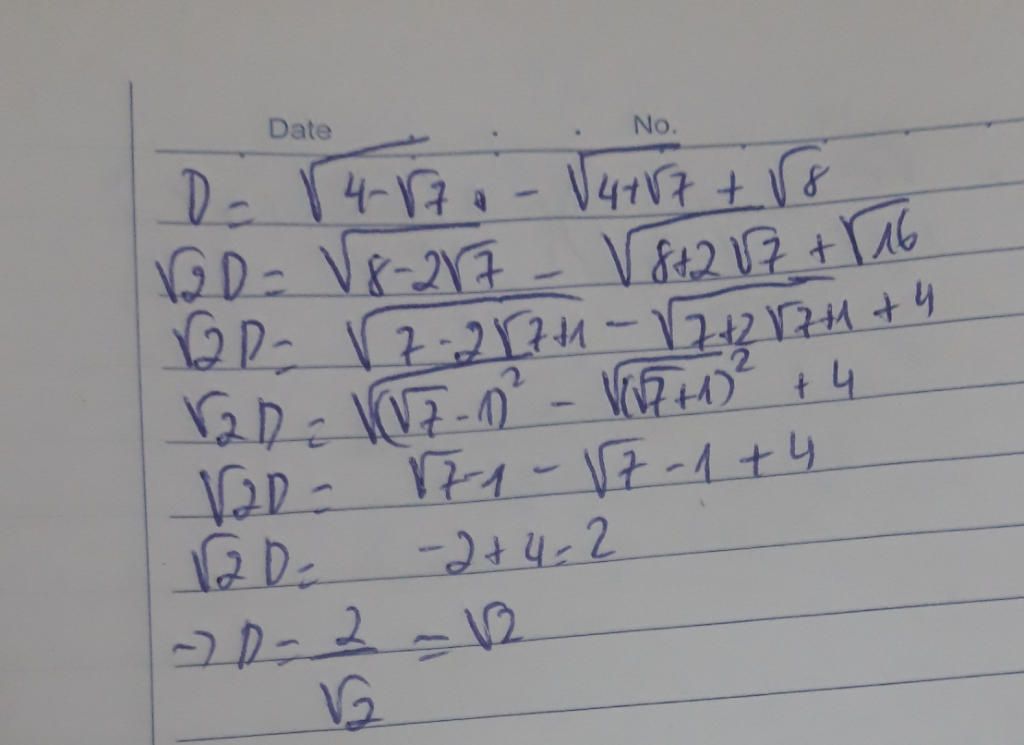 Date No.
D = √(4-√7) - √(4+√7) + √8
√2D = √(8-2√7) - √(8+2√7) + √16
√2D = √(7-2√7+1) - √(7+2√7+1) + 4
√2D = √((√7-1)²) - √((√7+1)²) + 4
√2D = √7-1 - √7-1 + 4
√2D = -2+4=2
→ D = 2/√2 = √2